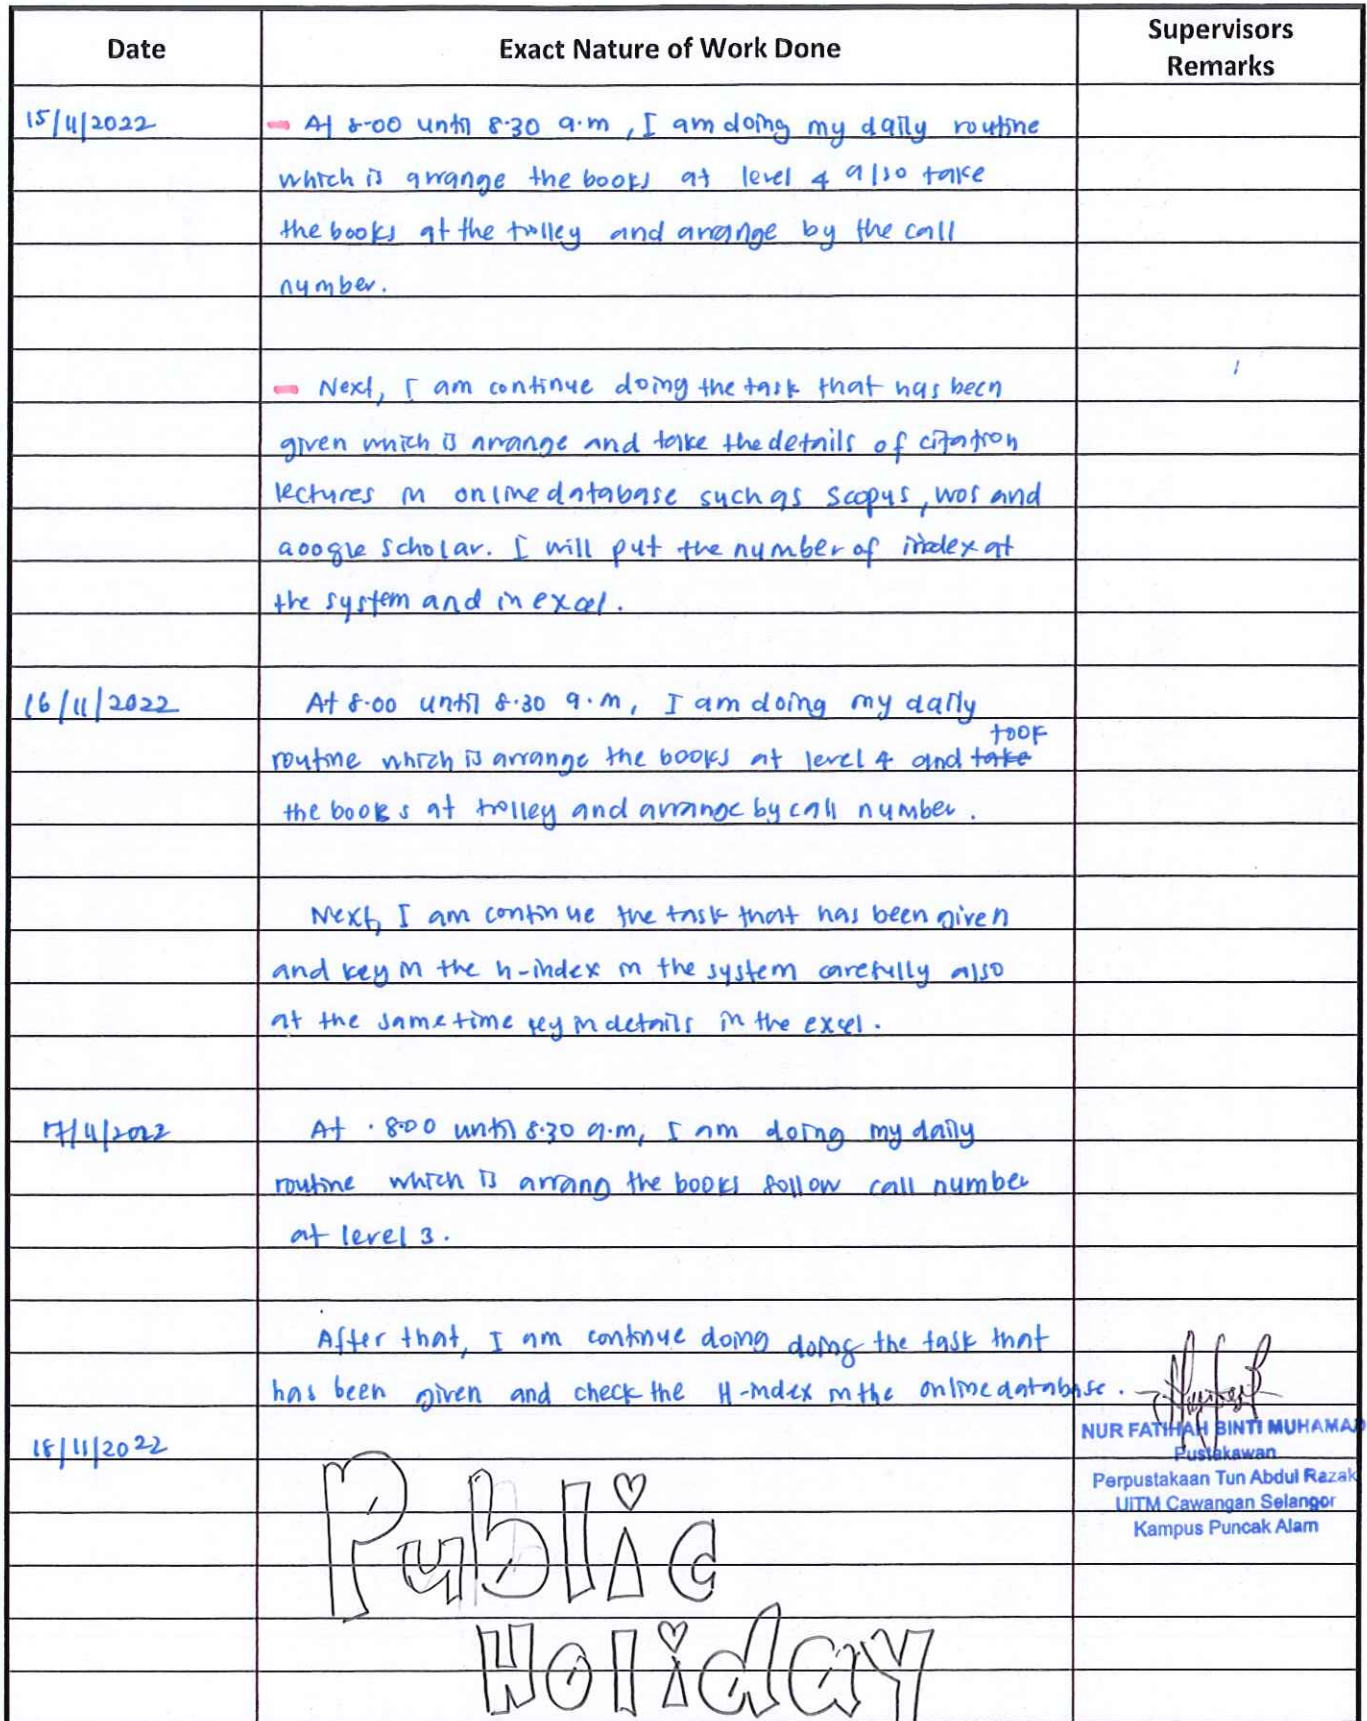 Date
Exact Nature of Work Done
Supervisors
Remarks
15/11/2022
- At 8.00 until 8.30 a.m, I am doing my daily routine
which is arrange the books at level 4 also take
the books at the trolley and arrange by the call
number.
- Next, I am continue doing the task that has been
given which is arrange and take the details of citation
lectures in online database such as Scopus, WOS and
Google Scholar. I will put the number of index at
the system and in excel.
16/11/2022
At 8.00 until 8.30 a.m, I am doing my daily
took
routine which is arrange the books at level 4 and take
the books at trolley and arrange by call number.
Next, I am continue the task that has been given
and key in the h-index in the system carefully also
at the same time key in details in the excel.
17/11/2022
At . 8.00 until 8.30 a.m, I am doing my daily
routine which is arrang the books follow call number
at level 3.
After that, I am continue doing doing the task that
has been given and check the H-index in the online database.
18/11/2022
NUR FATIHAH BINTI MUHAMAD
Pustakawan
Perpustakaan Tun Abdul Razak
UiTM Cawangan Selangor
Kampus Puncak Alam
Public
Holiday